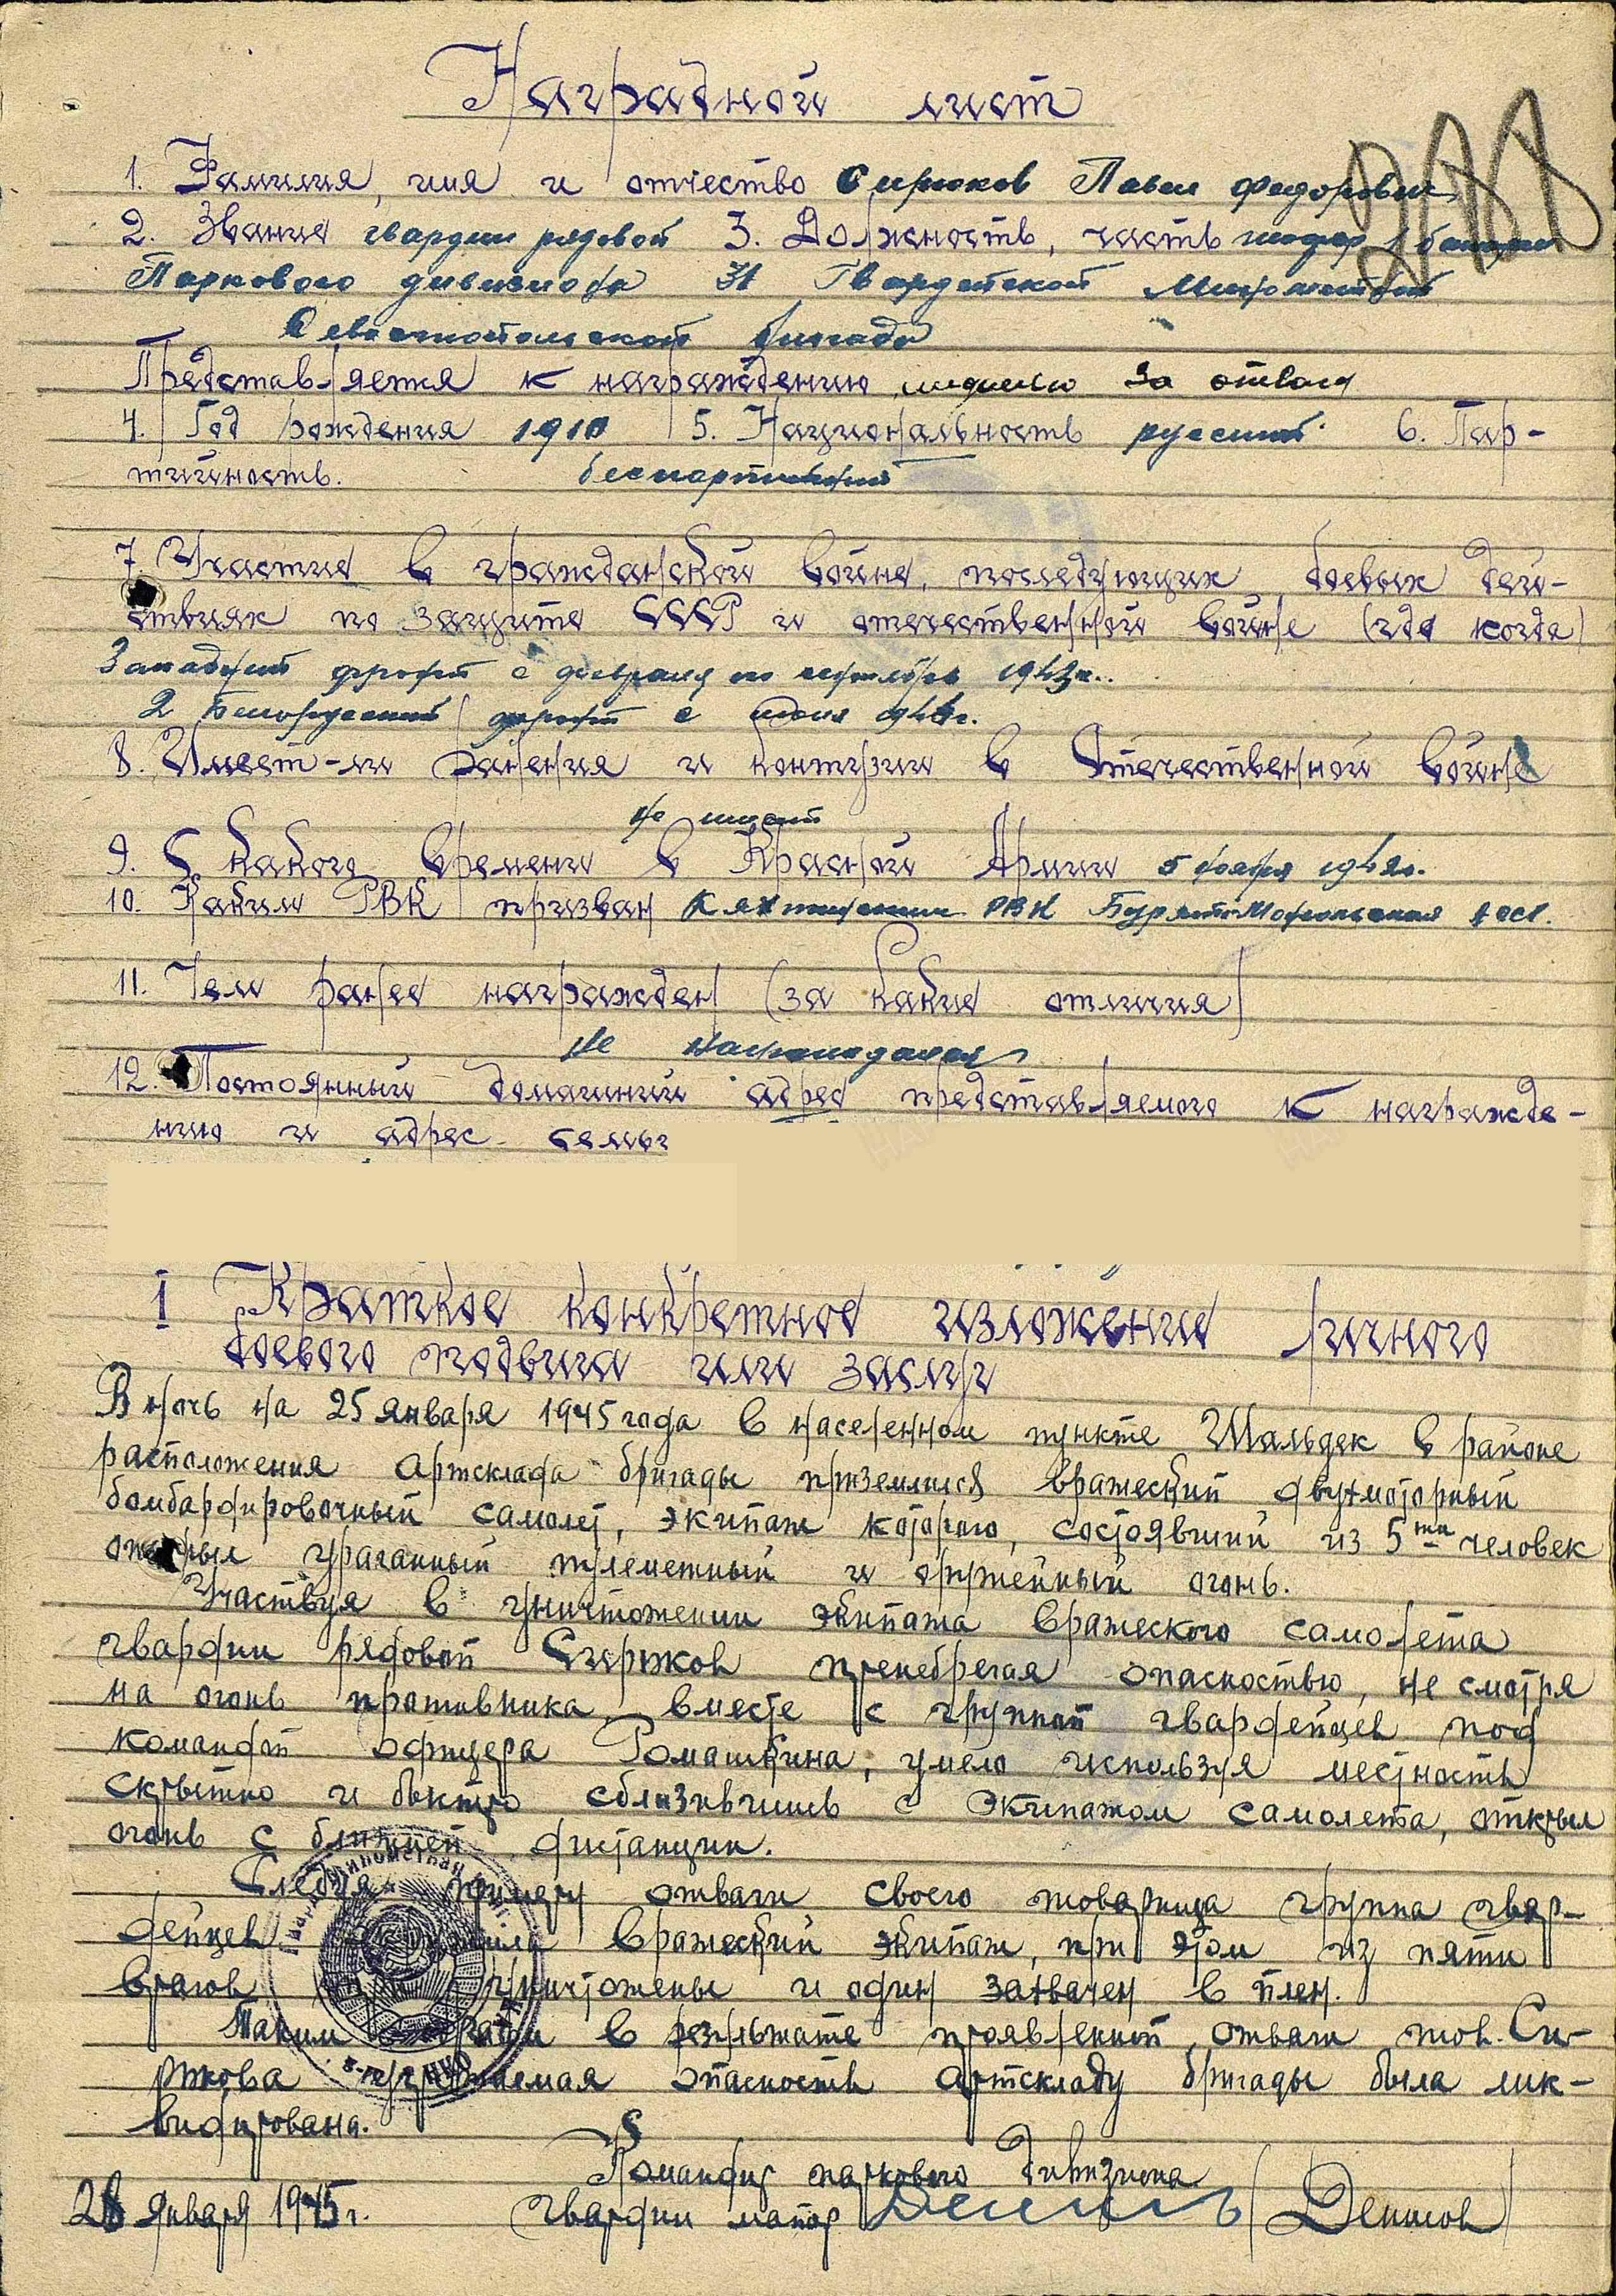 Наградной лист
1. Фамилия, имя и отчество Сирюков Павел Федорович
2. Звание гвардии рядовой 3. Должность, часть шофер 1 батареи
Паркового дивизиона 31 Гвардейской Минометной
Севастопольской бригады
Представляется к награждению медалью За отвагу
4. Год рождения 1910 5. Национальность русский 6. Пар-
тийность. беспартийный
7. Участие в гражданской войне, последующих боевых дей-
ствиях по защите СССР и отечественной войне (где когда)
Западный фронт с февраля по сентябрь 1943г.
2 Белорусский фронт с июня 1944г.
8. Имеет-ли ранения и контузии в Отечественной войне
Не имеет
9. С какого времени в Красной Армии 5 ноября 1942г.
10. Каким РВК призван Кяхтинским РВК Бурят-Монгольская АССР.
11. Чем ранее награжден (за какие отличия)
Не награждался
12. Постоянный домашний адрес представляемого к награжде-
нию и адрес семьи
I Краткое конкретное изложение личного
боевого подвига или заслуг
В ночь на 25 января 1945 года в населенном пункте Шальдек в районе
расположения артсклада бригады приземлился вражеский двухмоторный
бомбардировочный самолет, экипаж которого, состоявший из 5ти человек
открыл ураганный пулеметный и оружейный огонь.
Участвуя в уничтожении экипажа вражеского самолета
гвардии рядовой Сирюков пренебрегая опасностью, не смотря
на огонь противника, вместе с группой гвардейцев под
командой офицера Ромашкина, умело используя местность
скрытно и быстро сблизившись с экипажом самолета, открыл
огонь с ближней дистанции.
Следуя примеру отваги своего товарища группа гвар-
дейцев вражеский экипаж, при этом из пяти
врагов уничтожены и один захвачен в плен.
Таким образом в результате проявленной отваги тов. Си-
рюкова опасность артскладу бригады была лик-
видирована.
Командир паркового дивизиона
28 января 1945г. гвардии майор (Денисов)